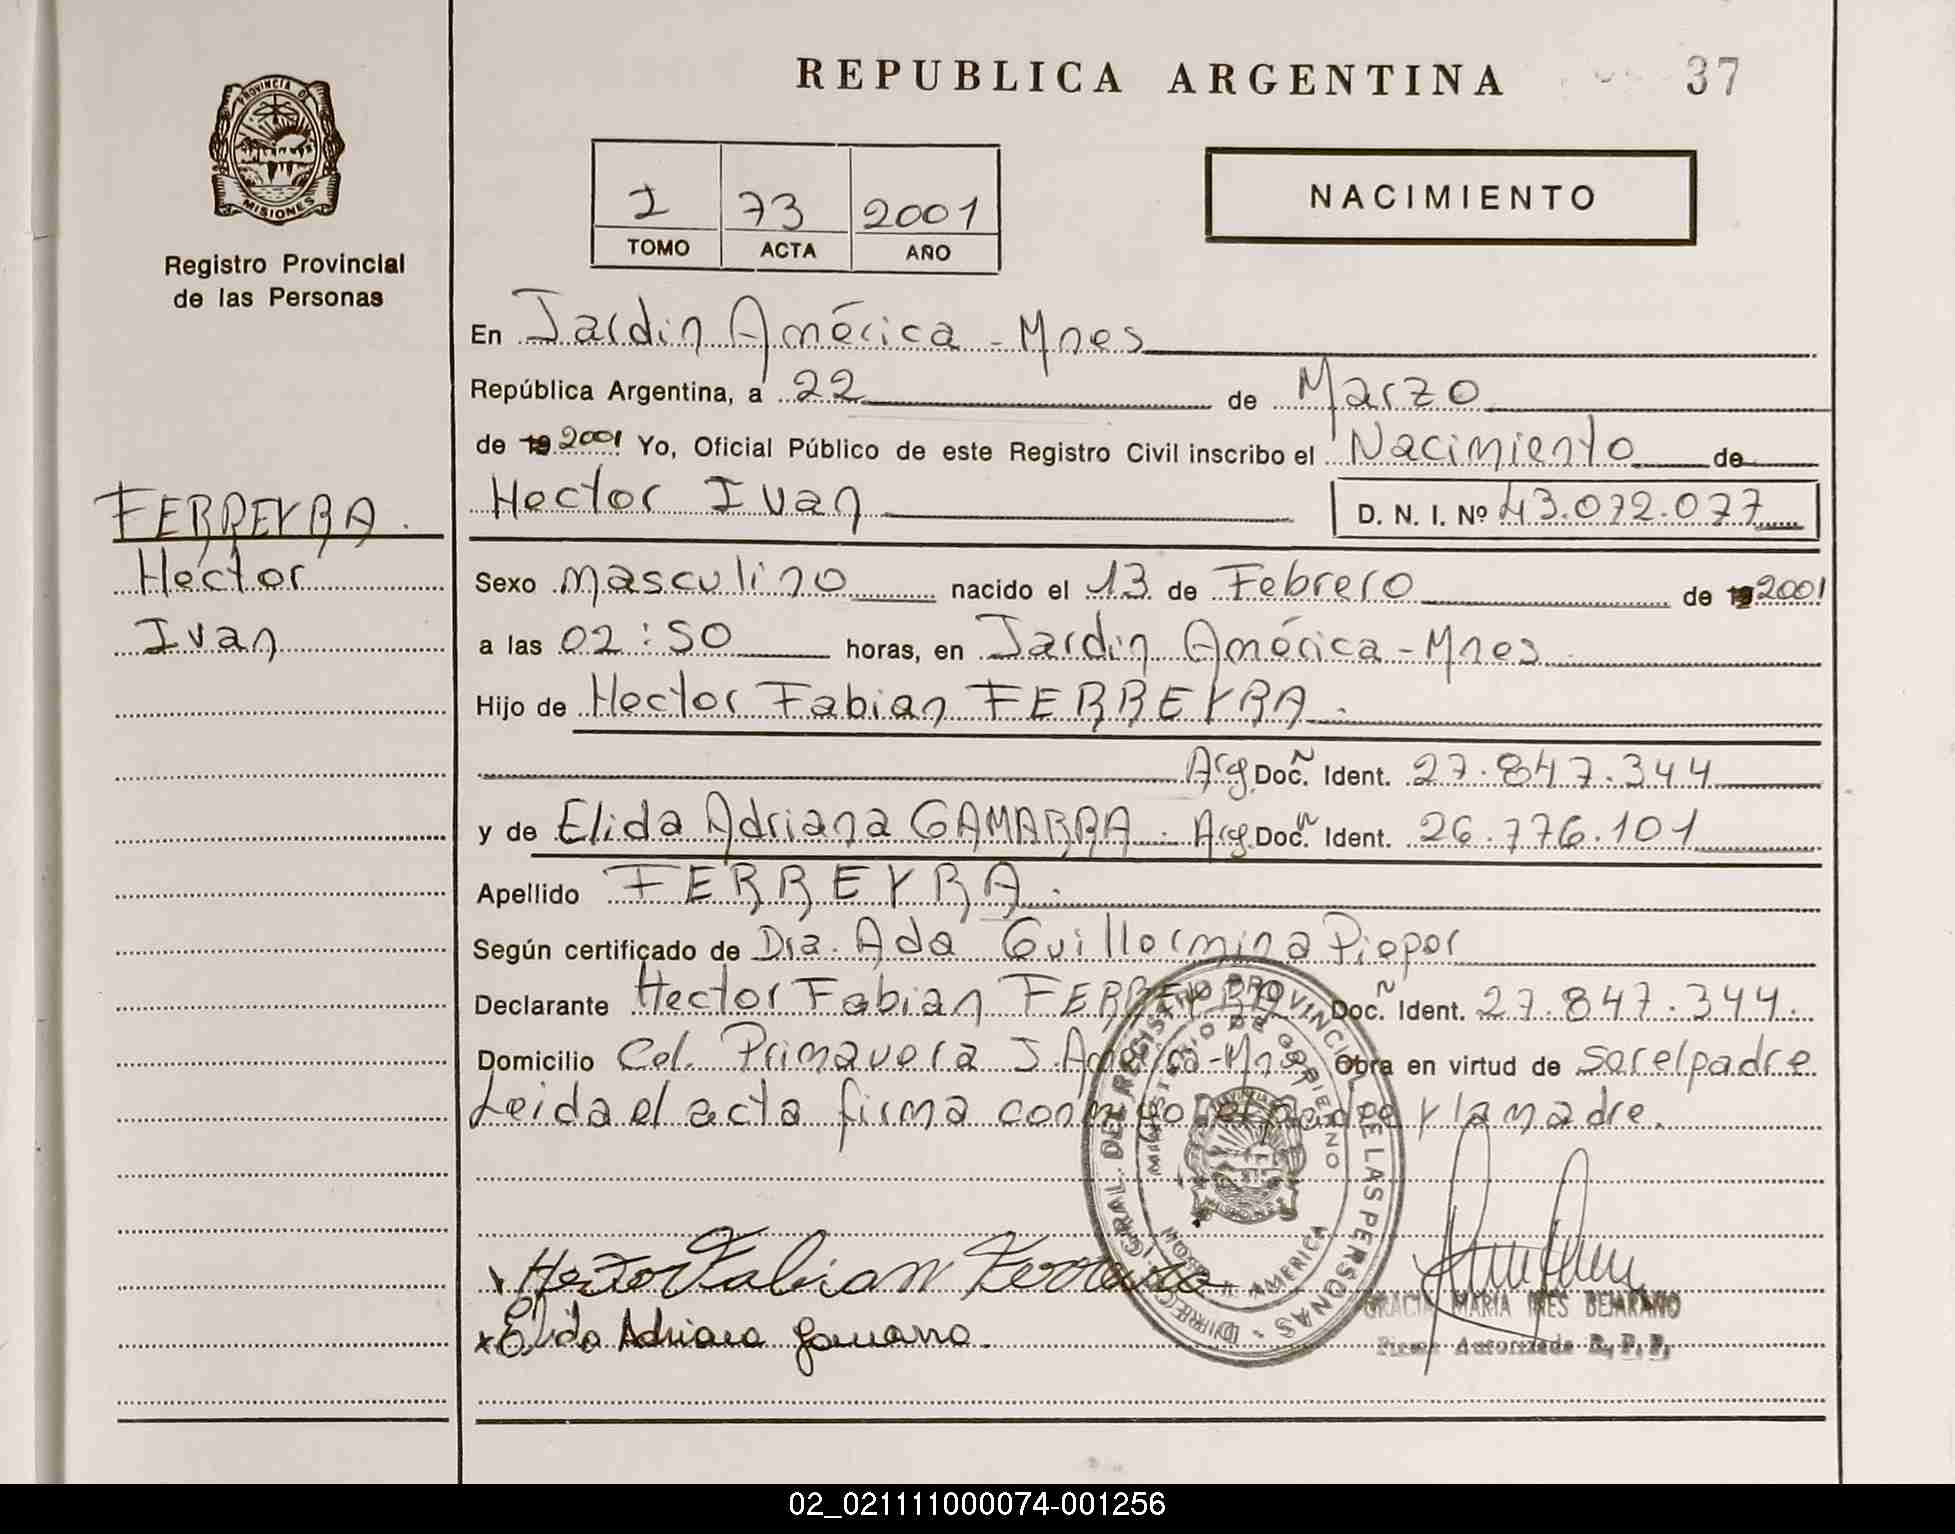 REPUBLICA ARGENTINA
37
PROVINCIA DE
MISIONES
Registro Provincial
de las Personas
I 73 2001
TOMO ACTA AÑO
NACIMIENTO
En Jardin América - Mnes
República Argentina, a 22 de Marzo
de 19 2001 Yo, Oficial Público de este Registro Civil inscribo el Nacimiento de
FERREYRA.
Hector
Ivan
Hector Ivan D. N. I. Nº 43.072.077
Sexo masculino nacido el 13 de Febrero de 19 2001
a las 02:50 horas, en Jardin América - Mnes
Hijo de Hector Fabian FERREYRA.
Arg. Doc. Ident. 27.847.344
y de Elida Adriana GAMARRA. Arg. Doc. Ident. 26.776.101
Apellido FERREYRA.
Según certificado de Dra. Ada Guillermina Pieper
Declarante Hector Fabian FERREYRA Doc. Ident. 27.847.344.
Domicilio Col. Primavera J. América - Mnes Obra en virtud de ser el padre
Leida el acta firma conmigo el padre y la madre.
DIRECC. GRAL. DEL REGISTRO PROVINCIAL DE LAS PERSONAS
MINISTERIO DE GOBIERNO
AMERICA
Hector Fabian Ferreira
Elida Adriana Gamarra.
GRACIA MARIA INES BEJARANO
Firma Autorizada R. P. P.
02_021111000074-001256